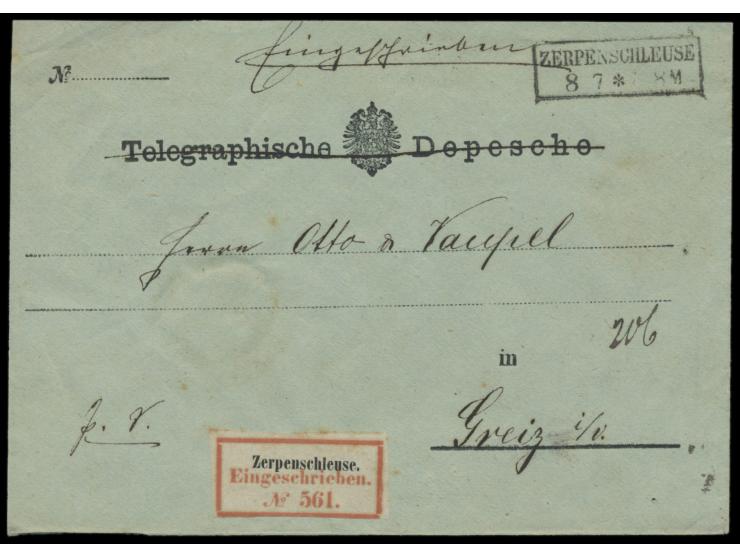 Eingeschrieben
ZERPENSCHLEUSE
8 7 * 8 M
№
Telegraphische Depesche
Herrn Otto & Vaupel
206
in
Greiz i/v.
p. v.
Zerpenschleuse.
Eingeschrieben.
№ 561.